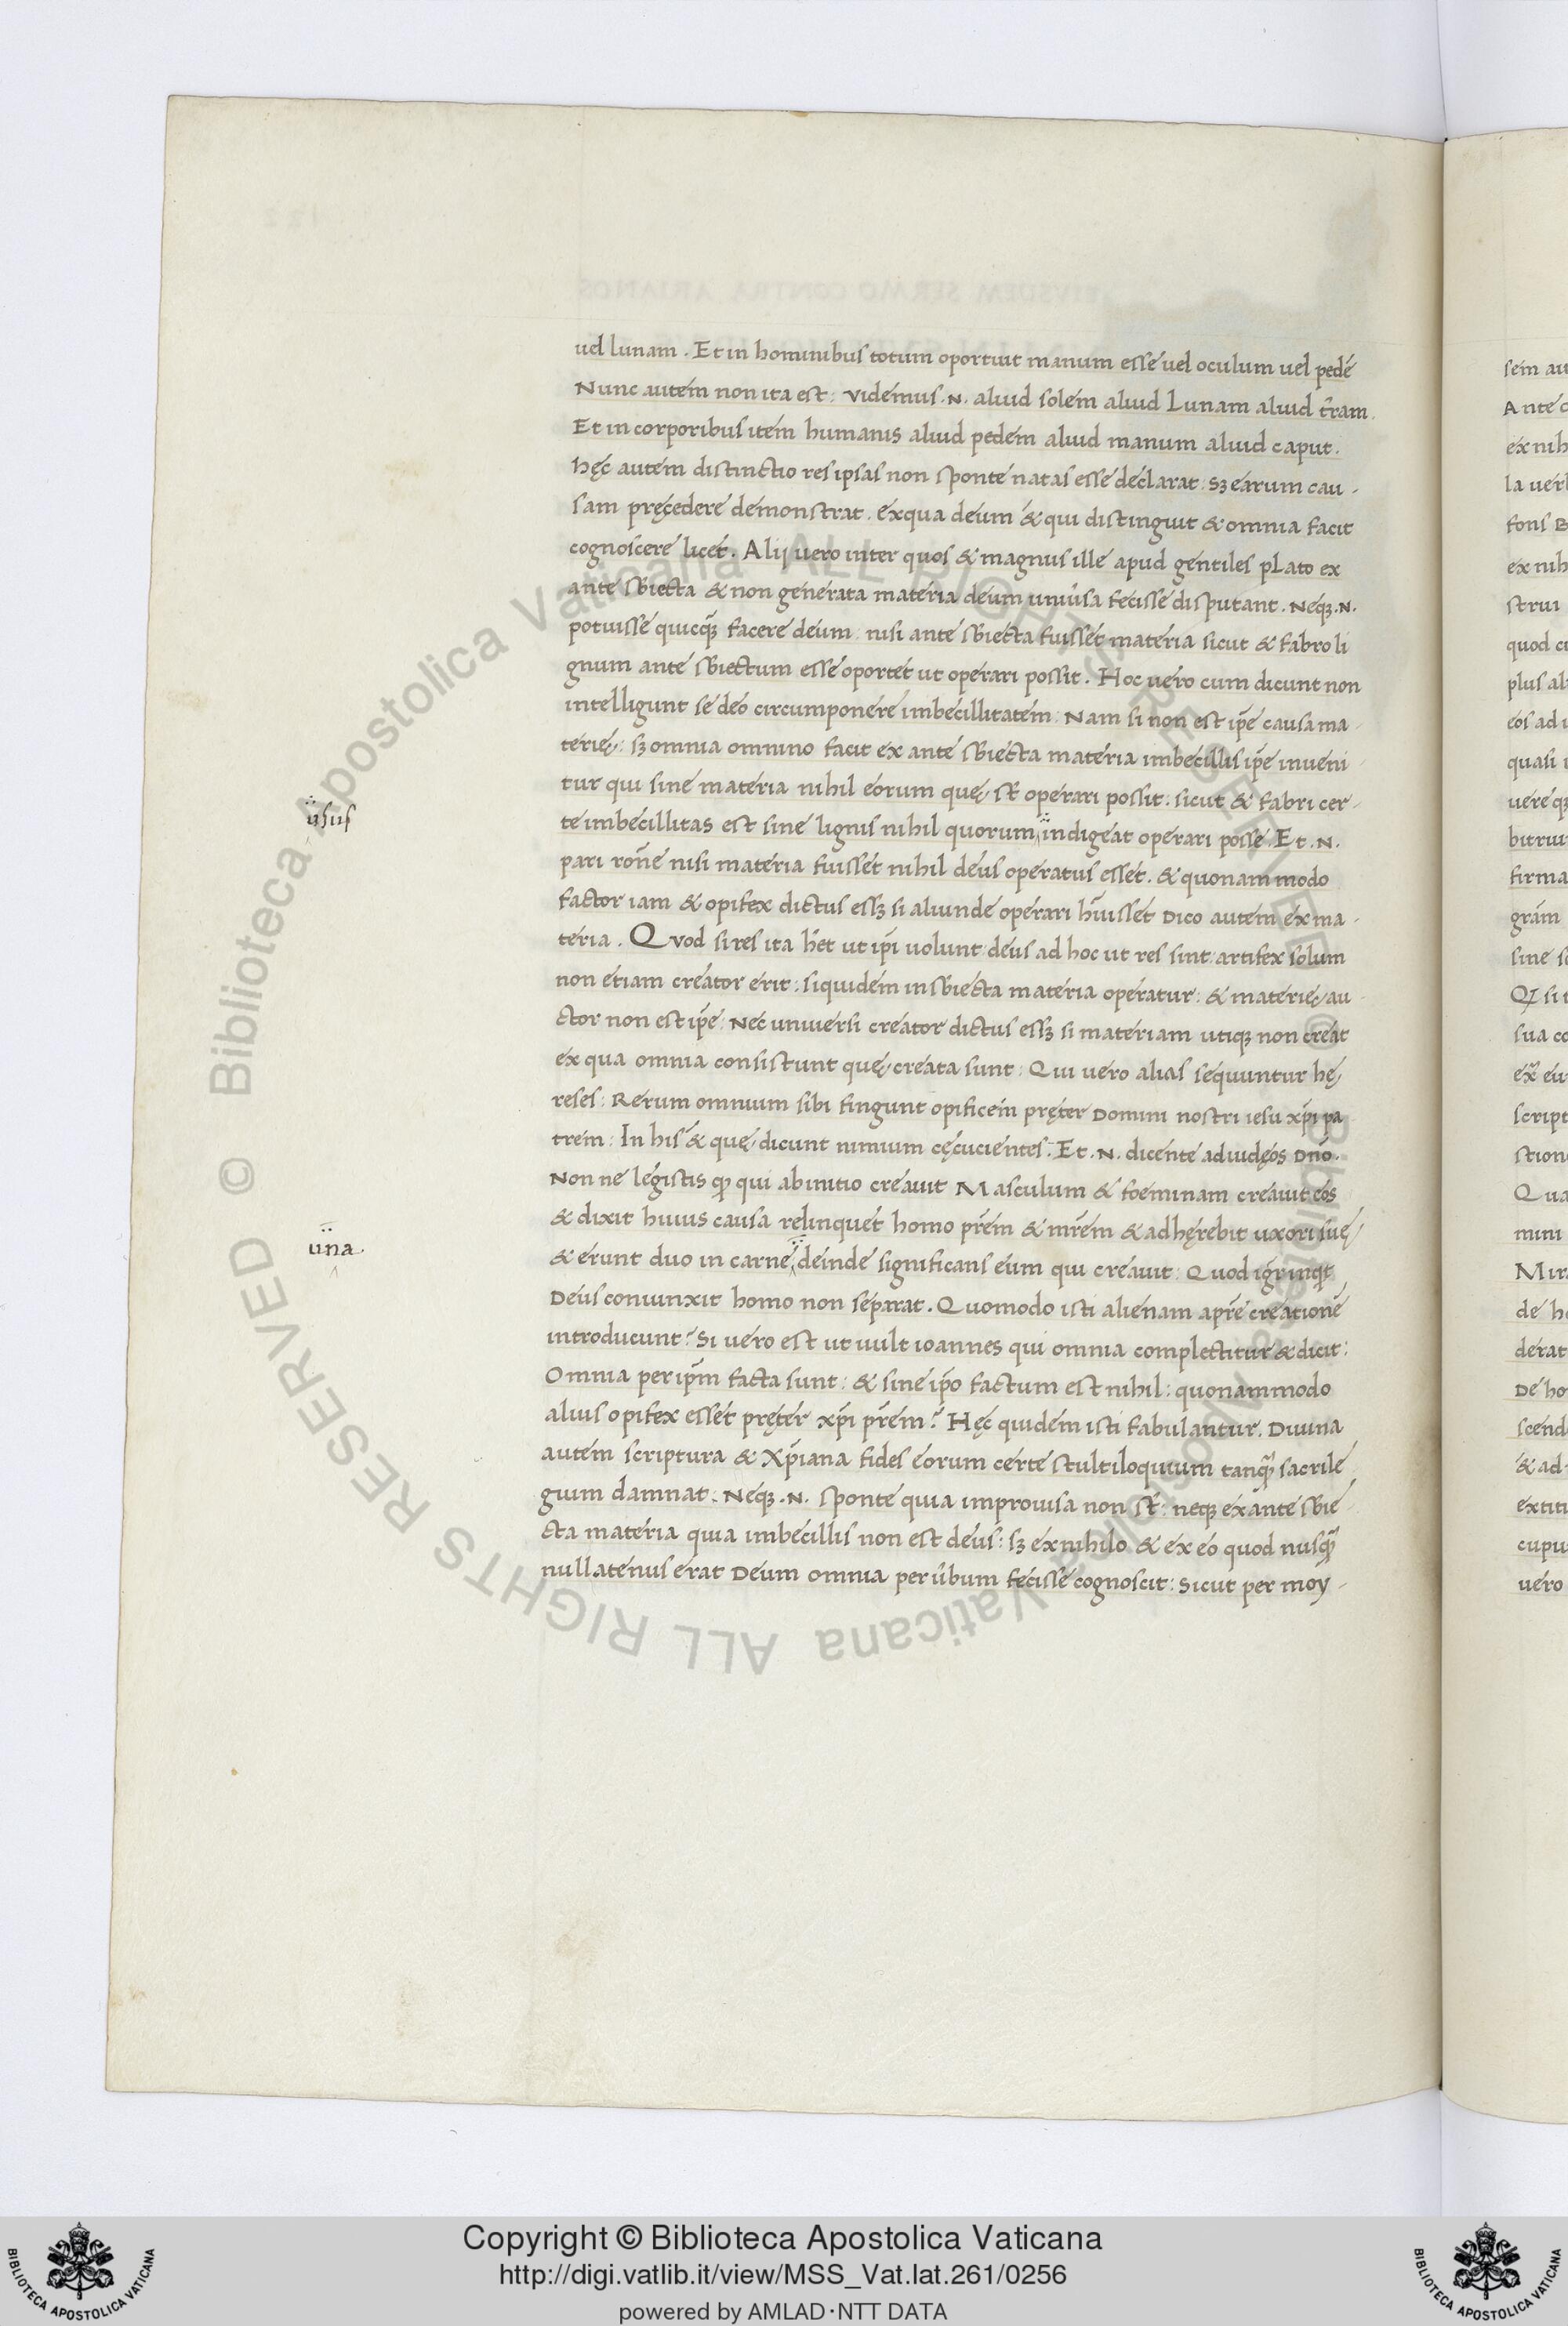 uel lunam . Et in hominibus totum oportuit manum esse uel oculum uel pedē
Nunc autem non ita est : videmus .N. aliud solem aliud Lunam aliud tr̄am .
Et in corporibus item humanis aliud pedem aliud manum aliud caput .
hęc autem distinctio res ipsas non sponte natas esse declarat : sꝫ earum cau -
sam pręcedere demonstrat . ex qua deum & qui distinguit & omnia facit
cognoscere licet . Alij uero inter quos & magnus ille apud gentiles pLato ex
ante sbiecta & non generata materia deum uniūsa fecisse disputant . Neqꝫ .N.
potuisse quicqꝫ̄ facere deum : nisi ante sbiecta fuisset materia sicut & fabro li
gnum ante sbiectum esse oportet ut operari possit . Hoc uero cum dicunt non
intelligunt se deo circumponere imbecillitatem : Nam si non est ip̄e causa ma -
terię : sꝫ omnia omnino facit ex ante sbiecta materia imbecillis ip̄e inueni -
tur qui sine materia nihil eorum quę st̄ operari possit : sicut & fabri cer -
te imbecillitas est sine lignis nihil quorum indigeat operari posse . Et .N.
pari rōne nisi materia fuisset nihil deus operatus esset . & quonam modo
factor iam & opifex dictus essꝫ si aliunde operari h̄uisset Dico autem ex ma -
teria . Quod si res ita h̄et ut ip̄i uolunt deus ad hoc ut res sint : artifex solum
non etiam creator erit : siquidem in sbiecta materia operatur : & materię au -
ctor non est ip̄e : Nec uniuersi creator dictus essꝫ si materiam utiqꝫ non creat
ex qua omnia consistunt quę creata sunt : Qui uero alias sequuntur hę
reses : Rerum omnium sibi fingunt opificem pręter Domini nostri iesu xp̄i pa
trem : In his & quę dicunt nimium cęcucientes . Et .N. dicente ad iudęos Dn̄o .
Non ne legistis qꝫ qui ab initio creauit Masculum & foeminam creauit eos
& dixit huius causa relinquet homo pr̄em & mr̄em & adhęrebit uxori suę
& erunt duo in carne deinde significans eum qui creauit : Quod igr̄ inqt
Deus coniunxit homo non separat . Quomodo isti alienam a pr̄e creationē
introducunt ? Si uero est ut uult ioannes qui omnia complectitur & dicit :
Omnia per ip̄m facta sunt : & sine ip̄o factum est nihil : quonammodo
alius opifex esset pręter xp̄i pr̄em ? Hęc quidem isti fabulantur . Diuina
autem scriptura & Xp̄iana fides eorum certe stultiloquium tanqꝫ̄ sacrile
gium damnat : Neqꝫ .N. sponte quia improuisa non st̄ : neqꝫ ex ante sbie -
cta materia quia imbecillis non est deus : sꝫ ex nihilo & ex eo quod nusqꝫ̄
nullatenus erat Deum omnia per ūbum fecisse cognoscit : Sicut per moy -
usus
una .
sem au
Ante
ex nih
la uer
fons
ex nih
strui
quod
plus al
eos ad
quasi
uere qꝫ
bitru
firma
gram
sine
si
sua
script
stion
Qua
mini
Mir
de
derat
De ho
scend
& ad
extit
cupu
uero
© Biblioteca Apostolica Vaticana ALL RIGHTS RESERVED
© Biblioteca Apostolica Vaticana ALL RIGHTS RESERVED
BIBLIOTECA APOSTOLICA VATICANA
Copyright © Biblioteca Apostolica Vaticana
http://digi.vatlib.it/view/MSS_Vat.lat.261/0256
powered by AMLAD·NTT DATA
BIBLIOTECA APOSTOLICA VATICANA